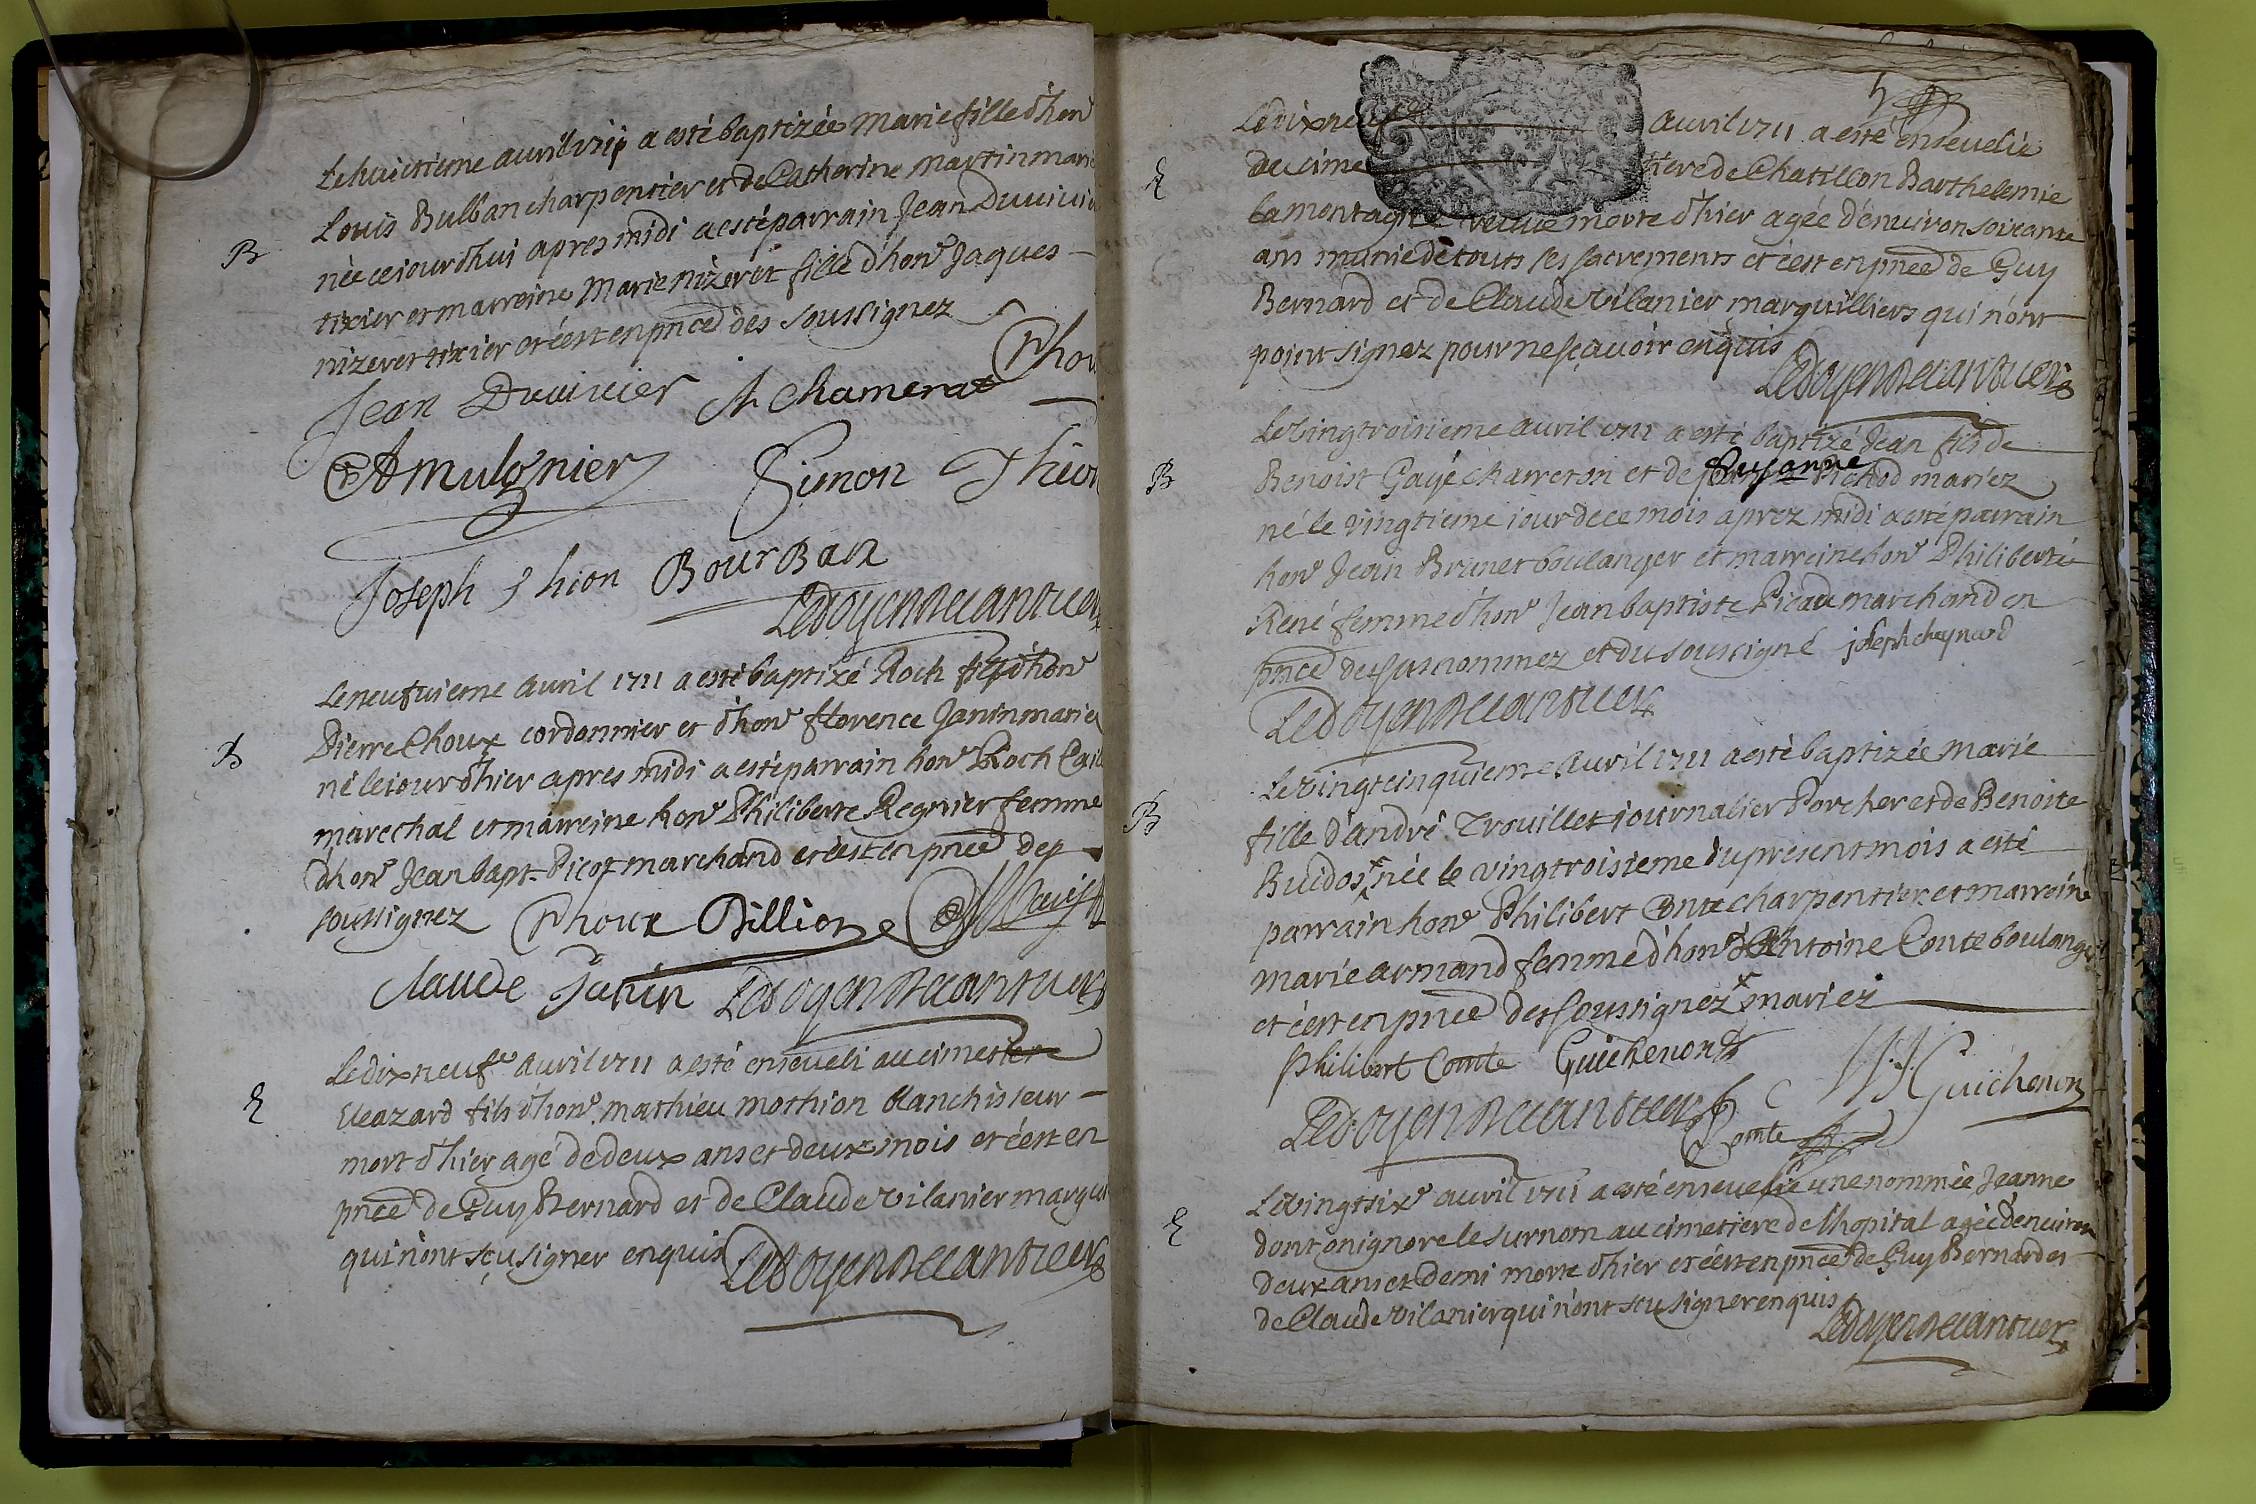 Le huictieme avril 1711 a esté baptizée Marie fille d'hon^e
Louis Bulban charpentier et de Catherine Martin mari
B
née ce jourd'huy apres midi a esté parrain Jean Duvivier
tixier et marreine Marie Nizeret fille d'hon^e Jaques
nizeret tixier et c'est en pnce des soussignez
Jean Duvivier Chamerat
Amulgnier Simon Thion
Joseph Thion BourBan
Ledoyen
Le neufvieme avril 1711 a esté baptizé Roch fils d'hon^e
Pierre Choux cordonnier et d'hon^e florence Janin mariez
B
né le jour d'hier apres midi a esté parrain hon^e Roch
marechal et marreine hon^e Philiberte Regnier femme
d'hon^e Jean bapt. Picot marchand et c'est en pnce des
soussignez Choux Billion
Claude Janin Ledoyen
Le dixneuf^e avril 1711 a esté enseveli au cimetiere
E
Eleazard fils d'hon^e mathieu mothion blanchisseur
mort d'hier agé de deux ans et deux mois et c'est en
pnce de Guy Bernard et de Claude vilanier margui
qui n'ont sçu signer enquis Ledoyen
5
Le dixneuf^e avril 1711 a esté ensevelie
E
au cimetiere de Chatillon Barthelemie
lamontagne veuve morte d'hier agée d'environ soixante
ans munie de touts ses sacrements et c'est en pnce de Guy
Bernard et de Claude vilanier marguilliers qui n'ont
point signez pour ne sçavoir enquis
Ledoyen
Le vingtroisieme avril 1711 a esté baptizé Jean fils de
B
Benoist Gayé charreton et de Susanne Pichod mariez
né le vingtieme jour de ce mois aprez midi a esté parrain
hon^e Jean Brunet boulanger et marreine hon^e Philiberte
René femme d'hon^e Jean baptiste Picau marchand en
pnce des susnommez et du soussigné joseph cheynard
Ledoyen
Le vingtcinquieme avril 1711 a esté baptizée Marie
B
fille d'andré Trouillet journalier Porcher et de Benoite
Buidos x née le vingtroisieme du present mois a esté
parrain hon^e Philibert Conte charpentier et marreine
marie armand femme d'hon^e Antoine Conte boulanger
et c'est en pnce des soussignez x mariez
Philibert Comte Guichenon
Ledoyen Guichenon
Comte
Le vingtsix^e avril 1711 a esté ensevelie une nommée Jeanne
E
dont on ignore le surnom au cimetiere de l'hopital agée d'environ
deux ans et demi morte d'hier et c'est en pnce de Guy Bernard et
de Claude vilanier qui n'ont sçu signer enquis
Ledoyen